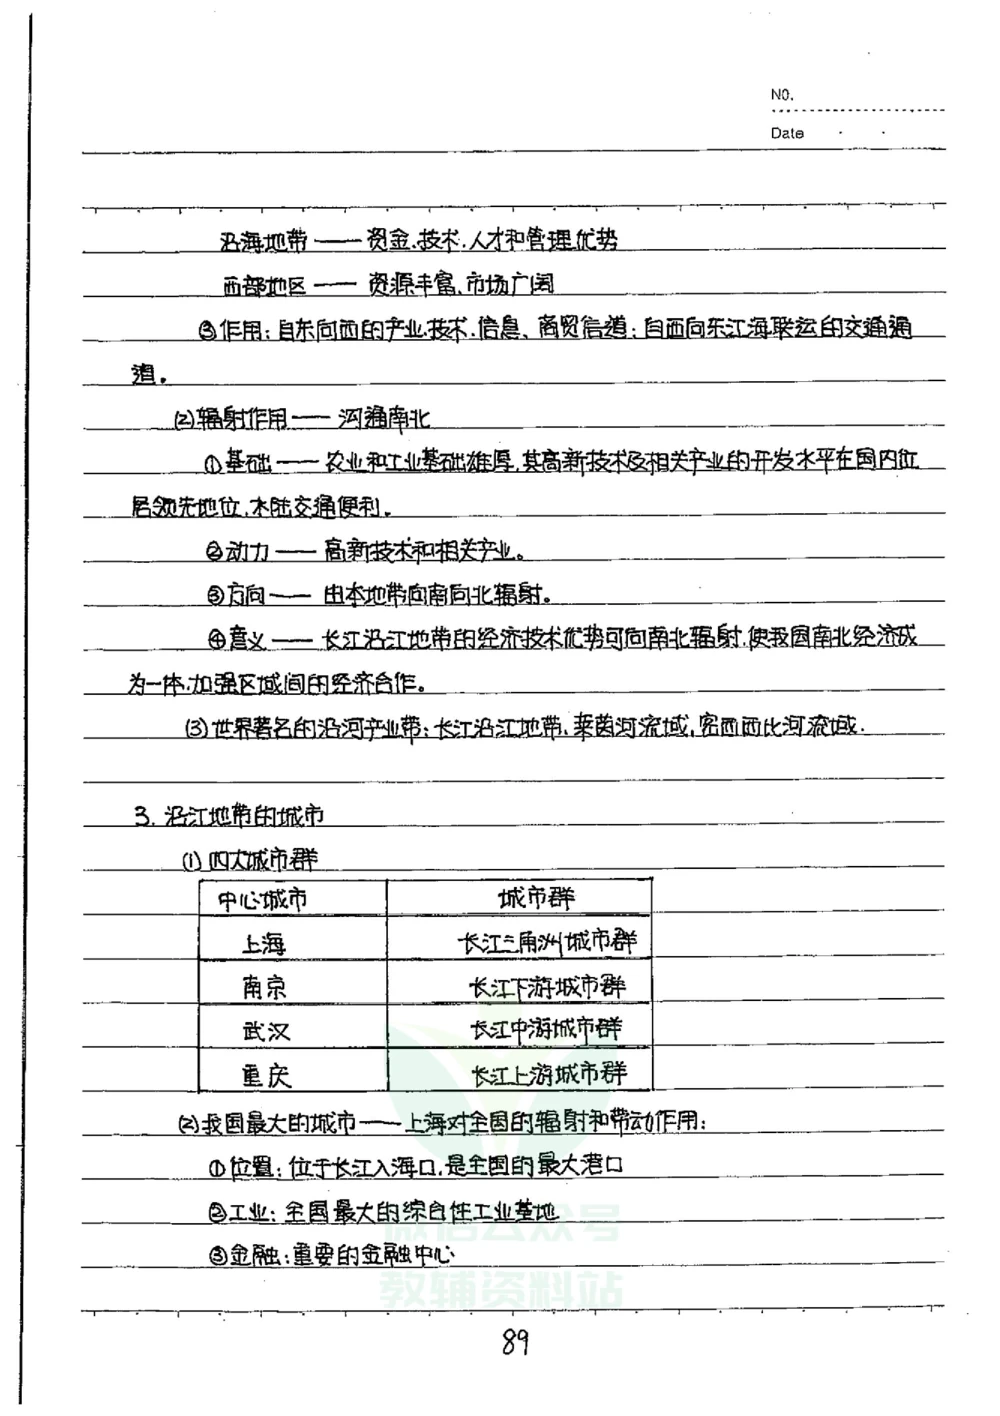 NO.
Date
沿海地带——资金、技术、人才和管理优势
西部地区——资源丰富、市场广阔
③作用:自东向西的产业、技术、信息、商贸信道;自西向东江海联运的交通通
道。
(2)辐射作用——沟通南北
①基础——农业和工业基础雄厚,其高新技术及相关产业的开发水平在国内位
居领先地位,水陆交通便利。
②动力——高新技术和相关产业。
③方向——由本地带向南向北辐射。
④意义——长江沿江地带的经济技术优势可向南北辐射,使我国南北经济成
为一体,加强区域间的经济合作。
(3)世界著名的沿河产业带:长江沿江地带、莱茵河流域、密西西比河流域.
3. 沿江地带的城市
(1)四大城市群
中心城市 城市群
上海 长江三角洲城市群
南京 长江下游城市群
武汉 长江中游城市群
重庆 长江上游城市群
(2)我国最大的城市——上海对全国的辐射和带动作用:
①位置:位于长江入海口,是全国的最大港口
②工业:全国最大的综合性工业基地
微信公众号
③金融:重要的金融中心
教辅资料站
89